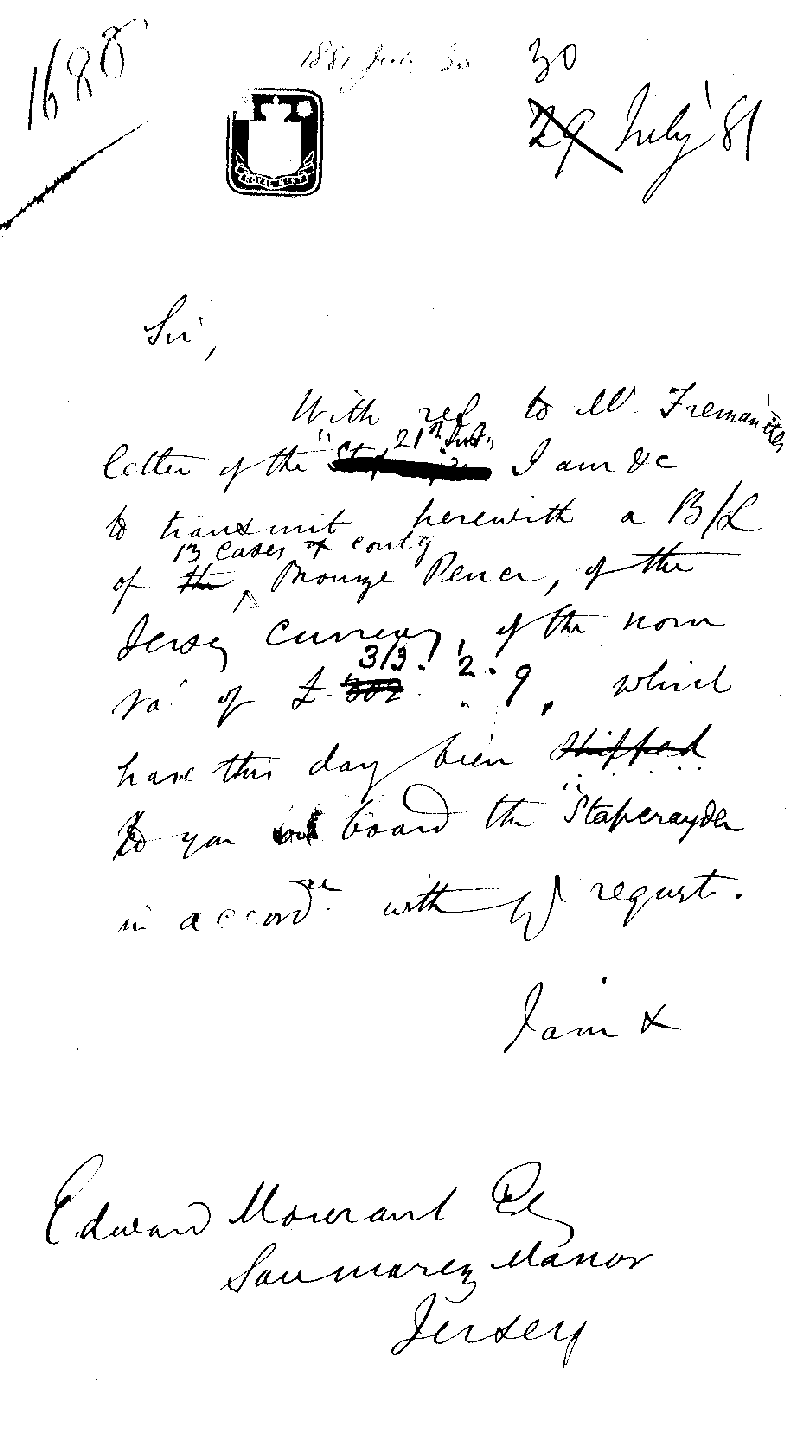 1688
1881 July 30
30
29 July 81
ROYAL MINT
Sir,
With ref to Mr. Fremantles
21st inst
letter of the I am &c
to transmit herewith a B/L
13 cases contg
of the Bronze Pence, of the
Jersey Currency, of the nom
313. 2. 9
va: of £ 302 , which
have this day been shipped
to you board the "Stapcrayder
in accordce with yr request.
I am &
Edward Mourant Esq
Saumarez Manor
Jersey